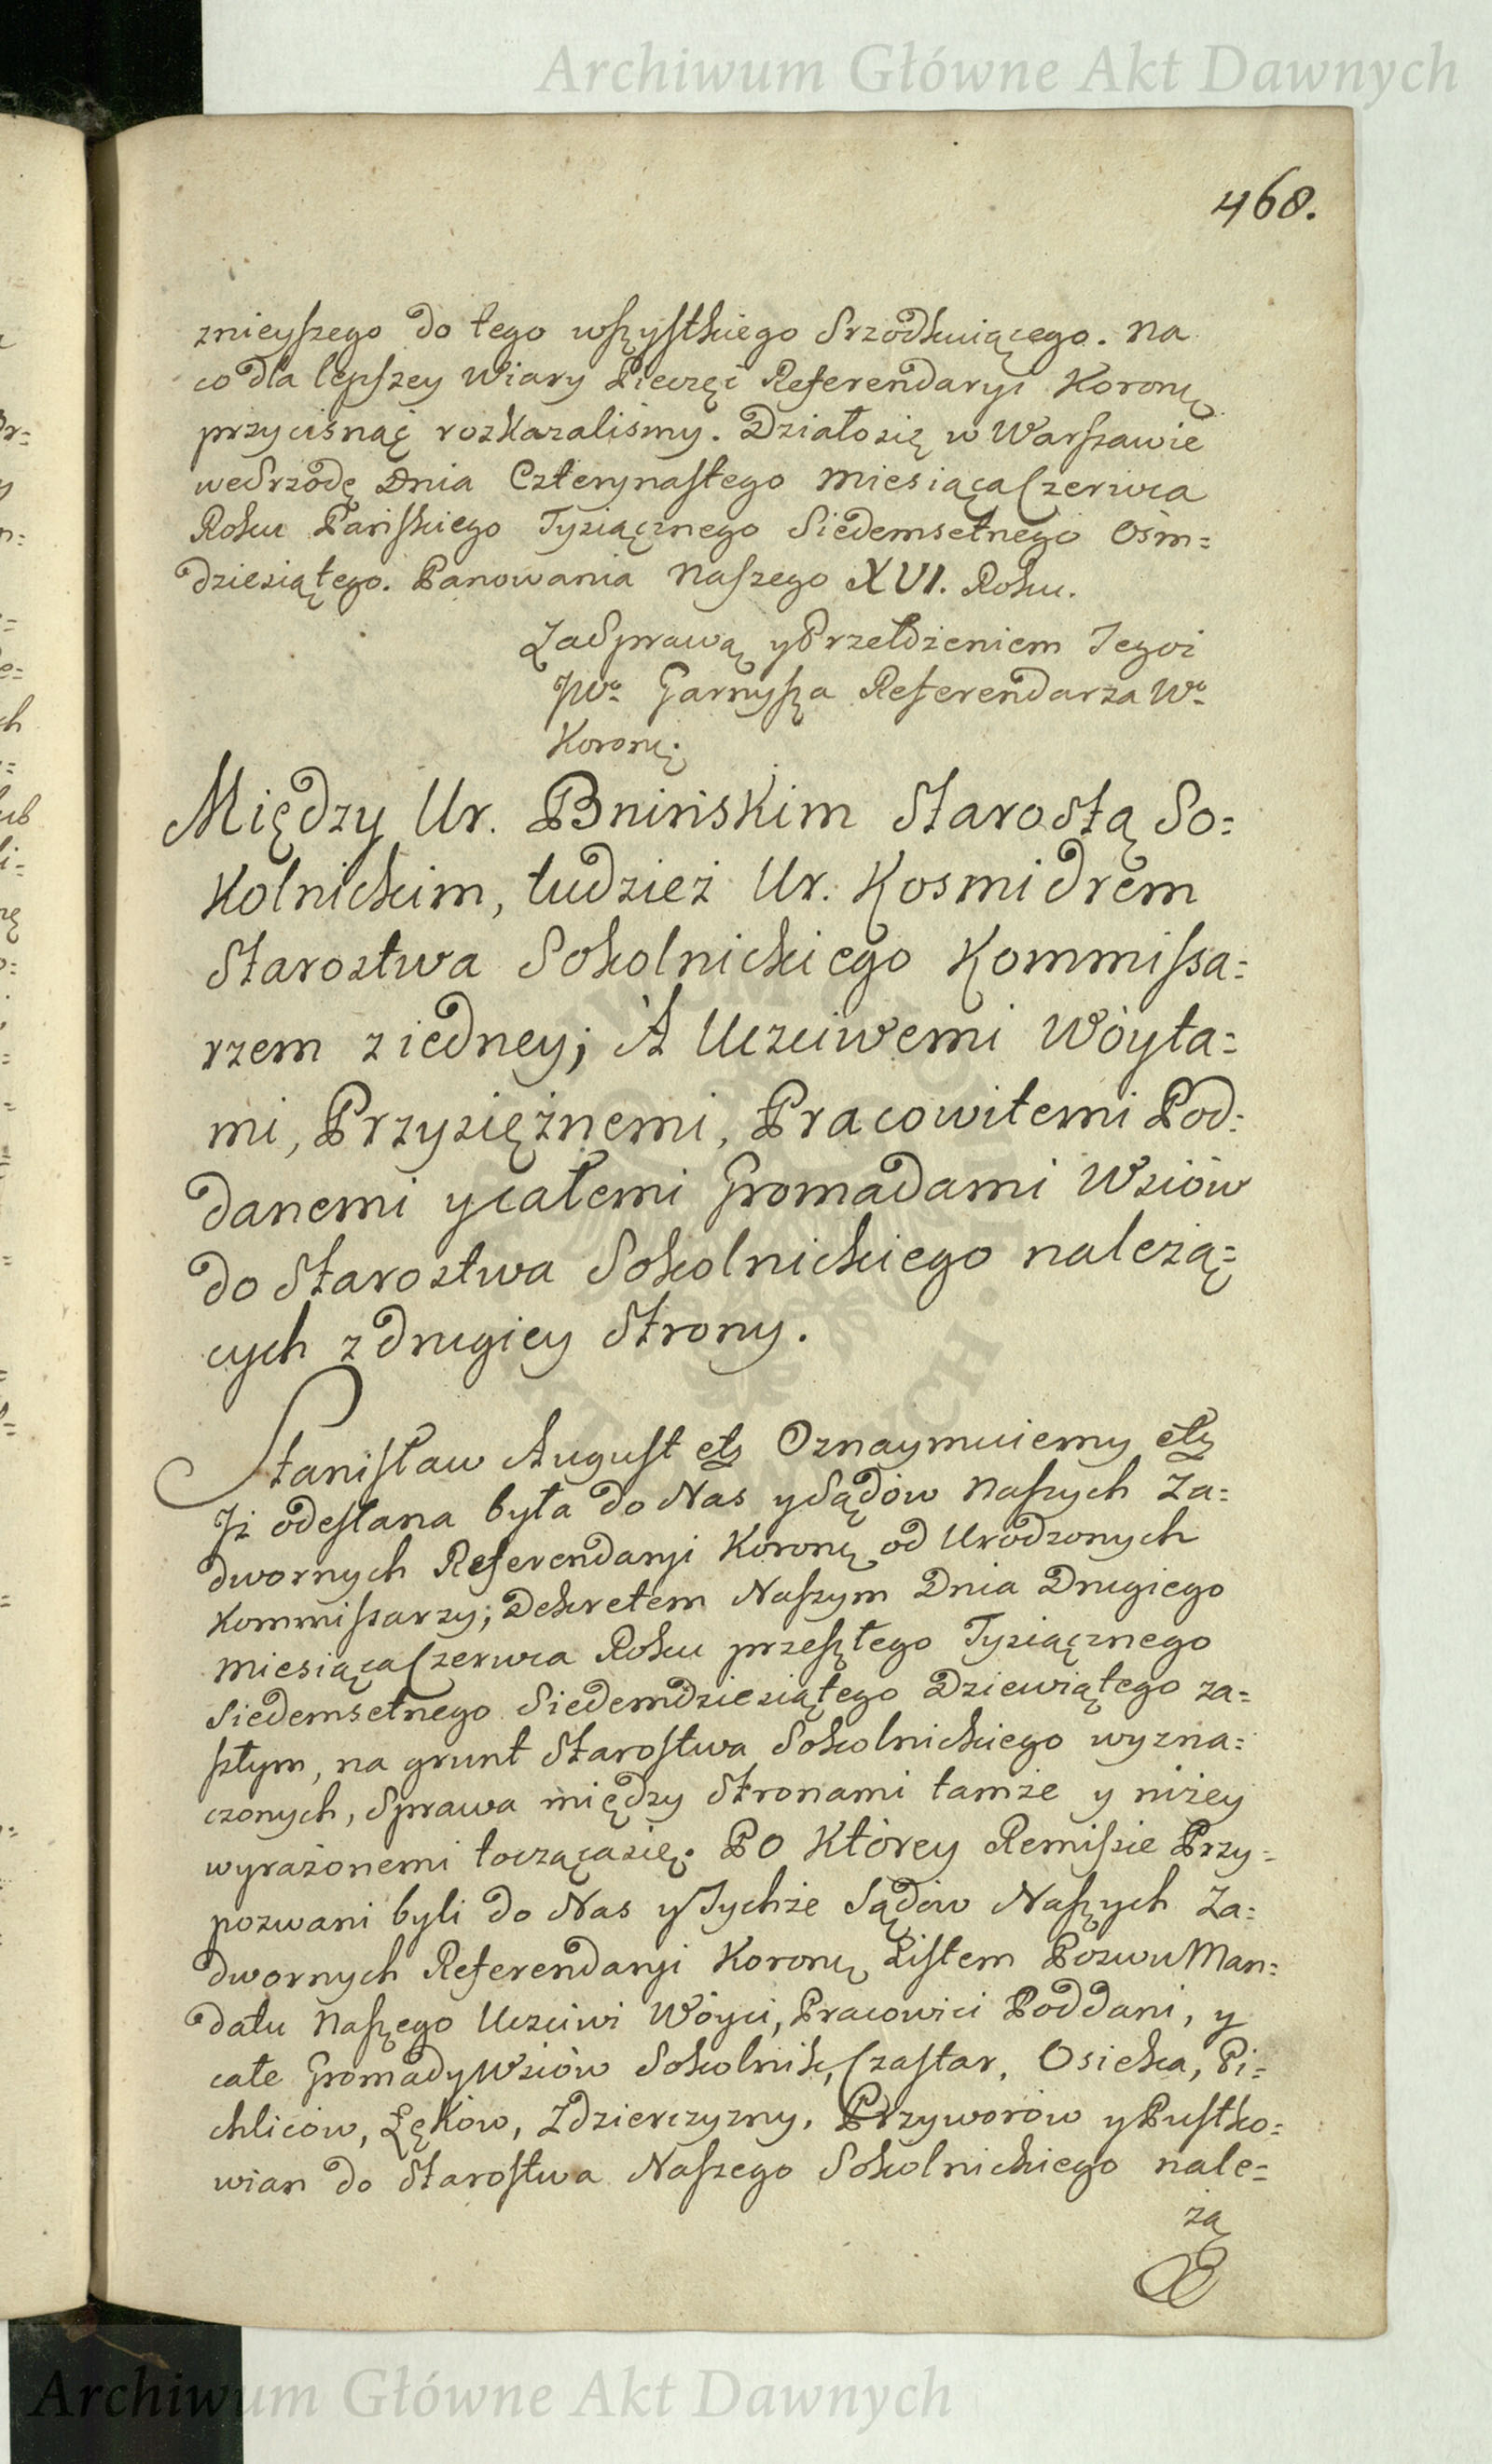 Archiwum Główne Akt Dawnych
468.
znieyszego do tego wszystkiego srzodkuiącego. Na
co dla lepszey Wiary Pieczęć Referendaryi Koronę
przycisnąć rozkazaliśmy. Działo się w Warszawie
we Srzodę Dnia Czterynastego Miesiąca Czerwca
Roku Pańskiego Tysiącznego Siedemsetnego Ośm=
dziesiątego. Panowania Naszego XVI. Roku.
Za Sprawą y Przełożeniem Tegoż
JWo. Garnysza Referendarza Wo.
Koronę.
Między Ur. Bnińskim Starostą So=
kolnickim, tudzież Ur. Kosmidrem
Starostwa Sokolnickiego Kommissa=
rzem z iedney; A Uczciwemi Wóyta=
mi, Przysiężnemi, Pracowitemi Pod=
danemi y całemi Gromadami Wsiów
do Starostwa Sokolnickiego należą=
cych z drugiey Strony.
Stanisław August etc Oznaymuiemy etc
Iż odesłana była do Nas y Sądów Naszych Za=
dwornych Referendaryi Koronę od Urodzonych
Kommissarzy; Dekretem Naszym Dnia Drugiego
Miesiąca Czerwca Roku przeszłego Tysiącznego
Siedemsetnego Siedemdziesiątego Dziewiątego za=
szłym, na grunt Starostwa Sokolnickiego wyzna=
czonych, Sprawa między Stronami tamże y niżey
wyrażonemi tocząca się. Po Którey Remissie Przy=
pozwani byli do Nas y Tychże Sądów Naszych Za=
dwornych Referendaryi Koronę Listem Pozwu Man=
datu Naszego Uczciwi Wóyci, Pracowici Poddani, y
całe Gromady Wsiów Sokolnik, Czastar, Osieka, Pi=
chliców, Łęków, Zdzierczyzny, Przyworów y Pustko=
wian do Starostwa Naszego Sokolnickiego nale=
żą
Archiwum Główne Akt Dawnych